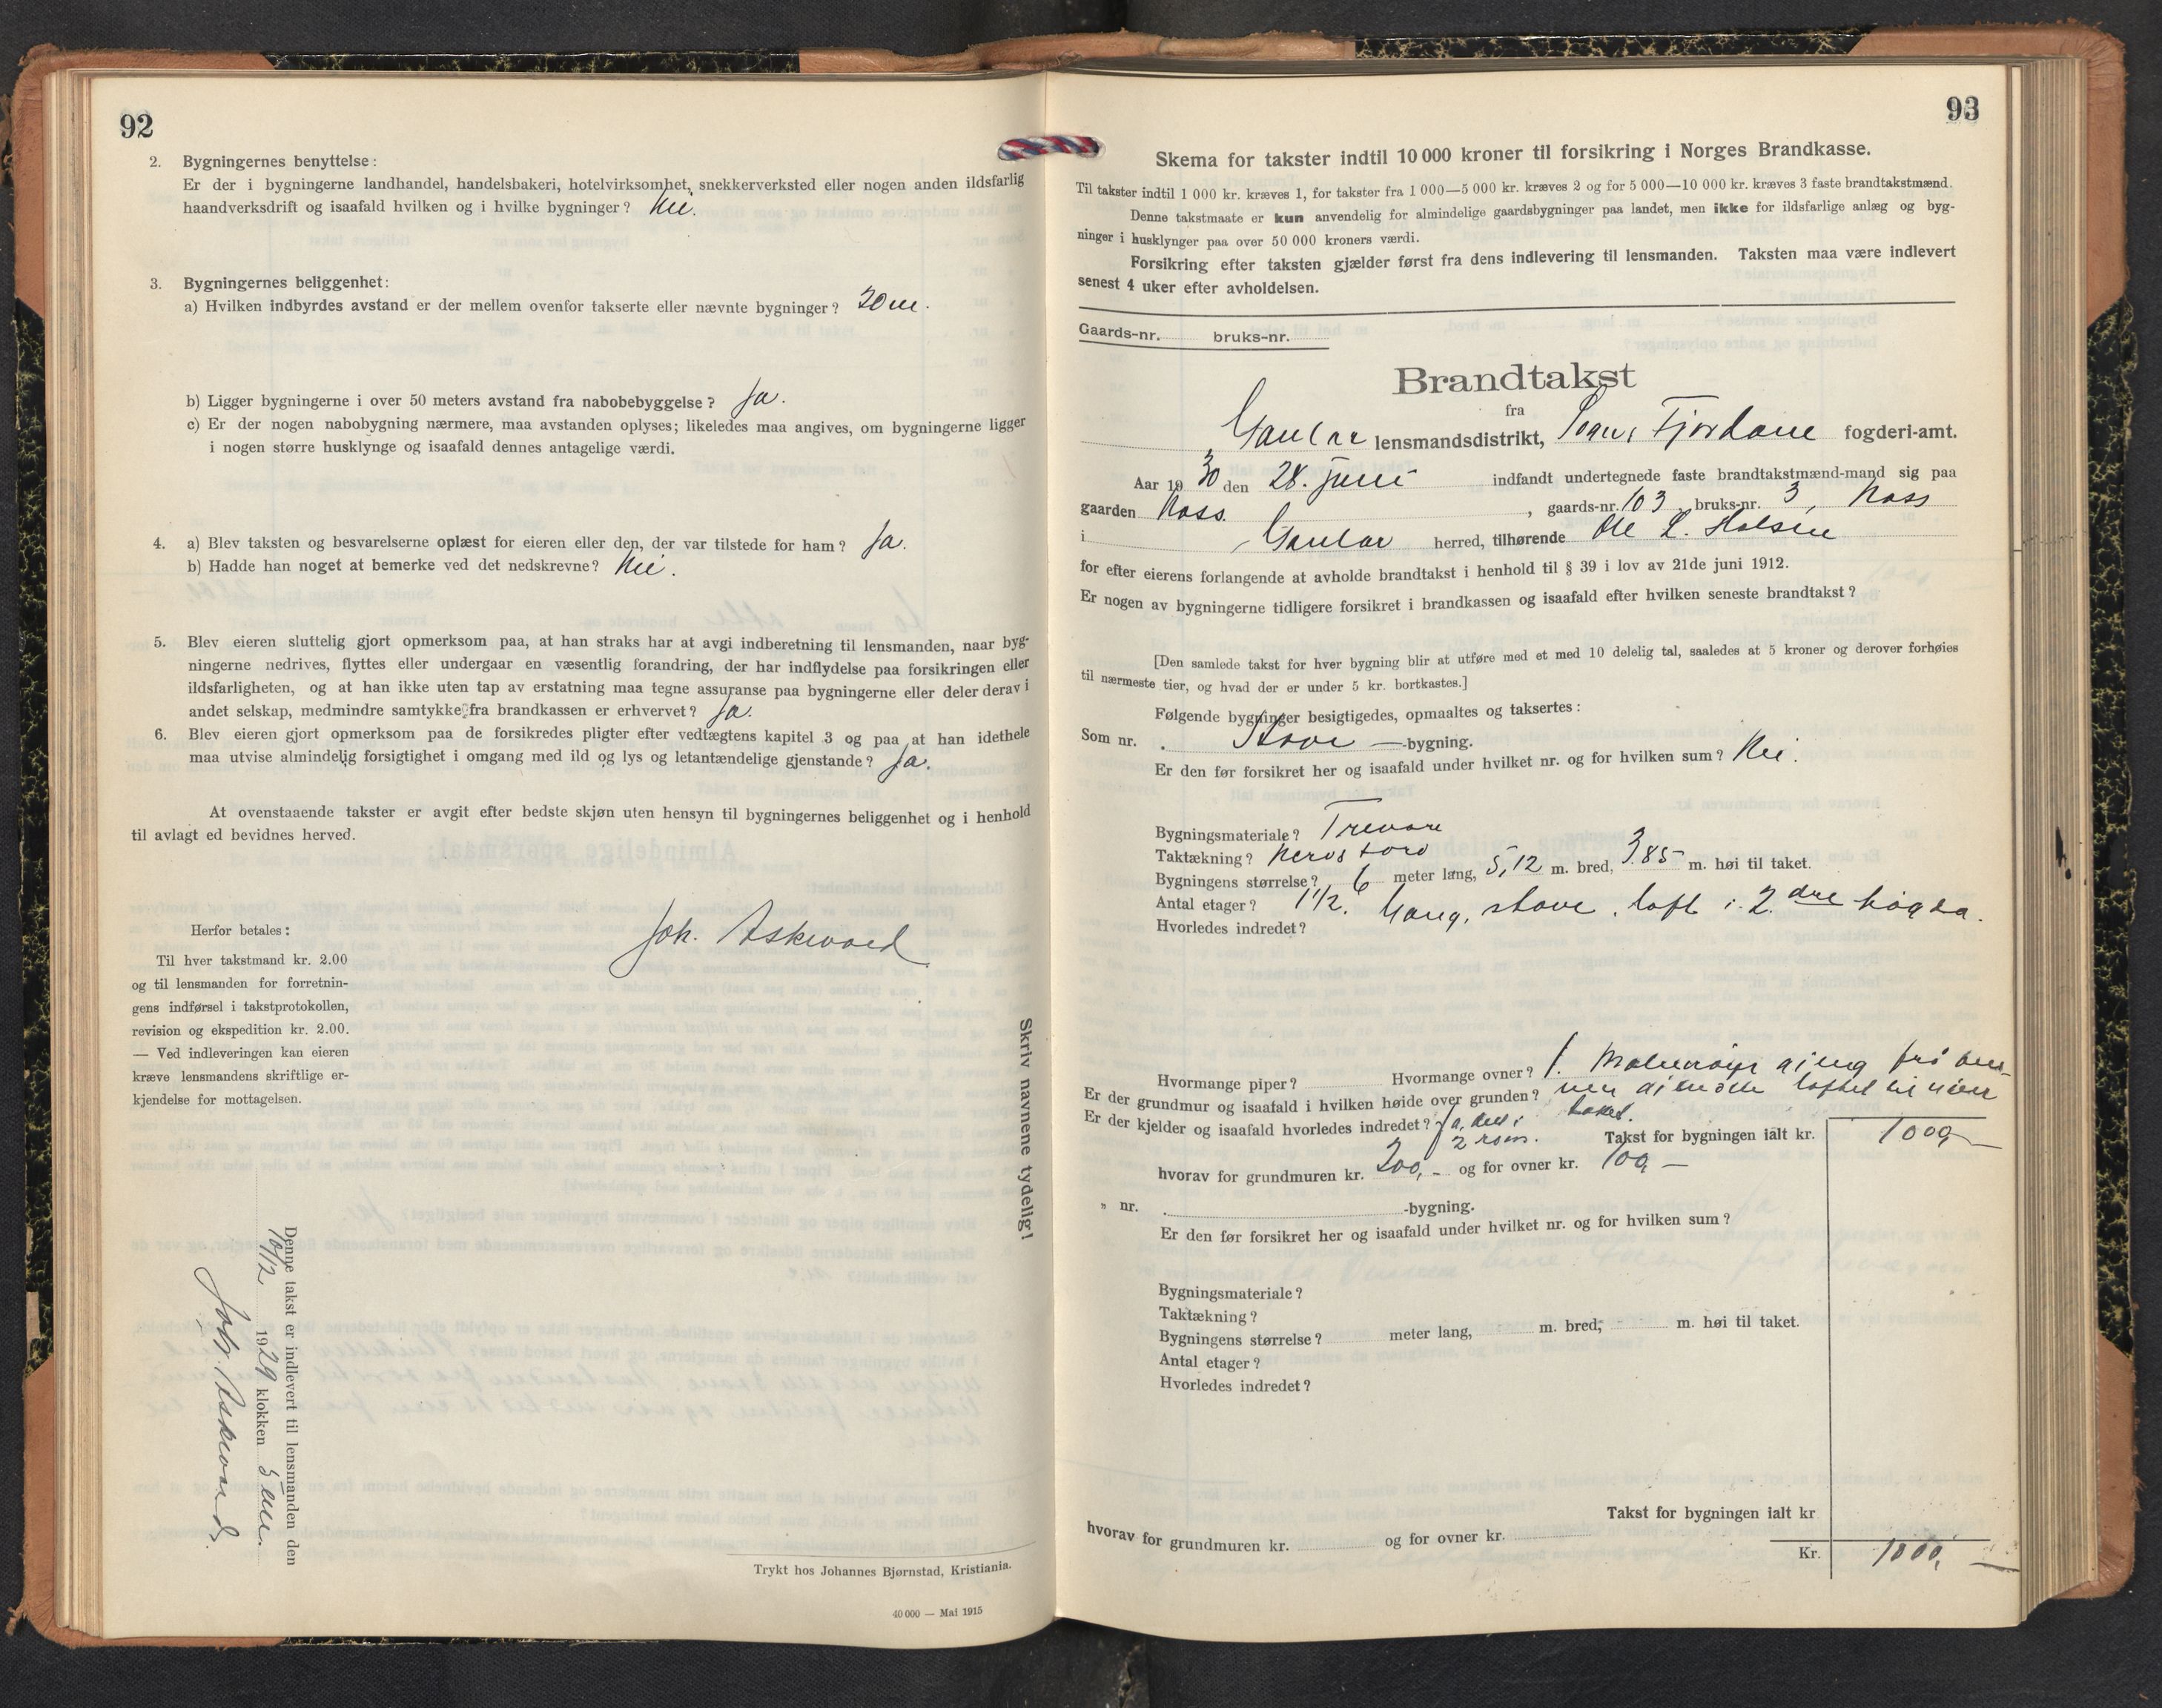 92
2. Bygningernes benyttelse:
Er der i bygningerne landhandel, handelsbakeri, hotelvirksomhet, snekkerverksted eller nogen anden ildsfarlig
haandverksdrift og isaafald hvilken og i hvilke bygninger? Nei.
3. Bygningernes beliggenhet:
a) Hvilken indbyrdes avstand er der mellem ovenfor takserte eller nævnte bygninger? 20 m.
b) Ligger bygningerne i over 50 meters avstand fra nabobebyggelse? Ja.
c) Er der nogen nabobygning nærmere, maa avstanden oplyses; likeledes maa angives, om bygningerne ligger
i nogen større husklynge og isaafald dennes antagelige værdi.
4. a) Blev taksten og besvarelserne oplæst for eieren eller den, der var tilstede for ham? Ja.
b) Hadde han noget at bemerke ved det nedskrevne? Nei.
5. Blev eieren sluttelig gjort opmerksom paa, at han straks har at avgi indberetning til lensmanden, naar byg-
ningerne nedrives, flyttes eller undergaar en væsentlig forandring, der har indflydelse paa forsikringen eller
ildsfarligheten, og at han ikke uten tap av erstatning maa tegne assuranse paa bygningerne eller deler derav i
andet selskap, medmindre samtykke fra brandkassen er erhvervet? Ja.
6. Blev eieren gjort opmerksom paa de forsikredes pligter efter vedtægtens kapitel 3 og paa at han idethele
maa utvise almindelig forsigtighet i omgang med ild og lys og letantændelige gjenstande? Ja.
At ovenstaaende takster er avgit efter bedste skjøn uten hensyn til bygningernes beliggenhet og i henhold
til avlagt ed bevidnes herved.
Joh. Askvoed
Herfor betales:
Til hver takstmand kr. 2.00
og til lensmanden for forretnin-
gens indførsel i takstprotokollen,
revision og ekspedition kr. 2.00.
— Ved indleveringen kan eieren
kræve lensmandens skriftlige er-
kjendelse for mottagelsen.
Skriv navnene tydelig!
Denne takst er indlevert til lensmanden den
10/12 1929 klokken 5 em.
Joh. Askvoed.
Trykt hos Johannes Bjørnstad, Kristiania.
40 000 — Mai 1915
93
Skema for takster indtil 10 000 kroner til forsikring i Norges Brandkasse.
Til takster indtil 1 000 kr. kræves 1, for takster fra 1 000—5 000 kr. kræves 2 og for 5 000—10 000 kr. kræves 3 faste brandtakstmænd.
Denne takstmaate er kun anvendelig for almindelige gaardsbygninger paa landet, men ikke for ildsfarlige anlæg og byg-
ninger i husklynger paa over 50 000 kroners værdi.
Forsikring efter taksten gjælder først fra dens indlevering til lensmanden. Taksten maa være indlevert
senest 4 uker efter avholdelsen.
Gaards-nr. bruks-nr.
Brandtakst
fra
Gaular lensmandsdistrikt, Sogn, Fjordane fogderi-amt.
Aar 1930 den 28. juni indfandt undertegnede faste brandtakstmænd-mand sig paa
gaarden Noss, gaards-nr. 103 bruks-nr. 3, Noss
i Gaular herred, tilhørende Ole L. Holsen
for efter eierens forlangende at avholde brandtakst i henhold til § 39 i lov av 21de juni 1912.
Er nogen av bygningerne tidligere forsikret i brandkassen og isaafald efter hvilken seneste brandtakst?
[Den samlede takst for hver bygning blir at utføre med et med 10 delelig tal, saaledes at 5 kroner og derover forhøies
til nærmeste tier, og hvad der er under 5 kr. bortkastes.]
Følgende bygninger besigtigedes, opmaaltes og taksertes:
Som nr. Stove -bygning.
Er den før forsikret her og isaafald under hvilket nr. og for hvilken sum? Nei.
Bygningsmateriale? Trevare
Taktækning? Nevos torv
Bygningens størrelse? 6 meter lang, 5,12 m. bred, 3.85 m. høi til taket.
Antal etager? 1 1/2.
Hvorledes indredet? Gang, stove, loft i 2. dre høgda.
Hvormange piper? Hvormange ovner? 1.
Er der grundmur og isaafald i hvilken høide over grunden?
Er der kjelder og isaafald hvorledes indredet? Ja, 2 rom.
Takst for bygningen ialt kr. 1000,—
hvorav for grundmuren kr. 200,- og for ovner kr. 100,—
" nr. -bygning.
Er den før forsikret her og isaafald under hvilket nr. og for hvilken sum?
Bygningsmateriale?
Taktækning?
Bygningens størrelse? meter lang, m. bred, m. høi til taket.
Antal etager?
Hvorledes indredet?
Takst for bygningen ialt kr
hvorav for grundmuren kr. og for ovner kr.
Kr. 1000,—